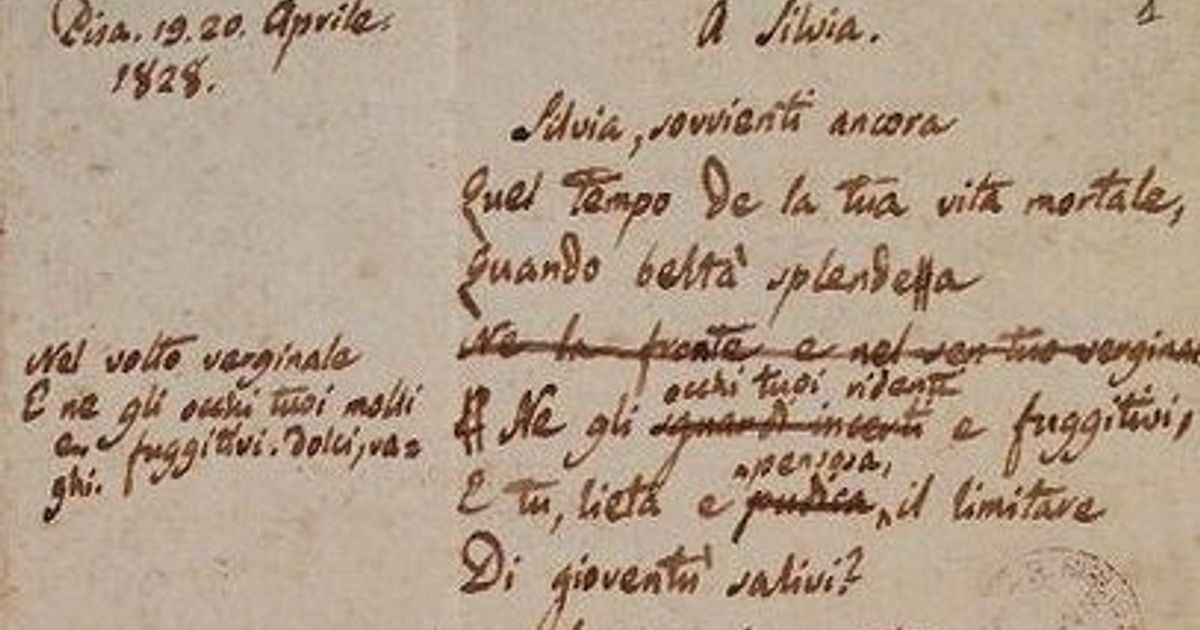 Pisa. 19. 20. Aprile.
1828.
A Silvia.
1
Silvia, sovvienti ancora
Quel tempo de la tua vita mortale,
Quando beltà splendea
Ne la fronte e nel sen tuo verginal
occhi tuoi ridenti
Ne gli sguardi incerti e fuggitivi,
pensosa,
E tu, lieta e pudica, il limitare
Di gioventù salivi?
Nel volto verginale
E ne gli occhi tuoi molli
e fuggitivi. dolci, va=
ghi.